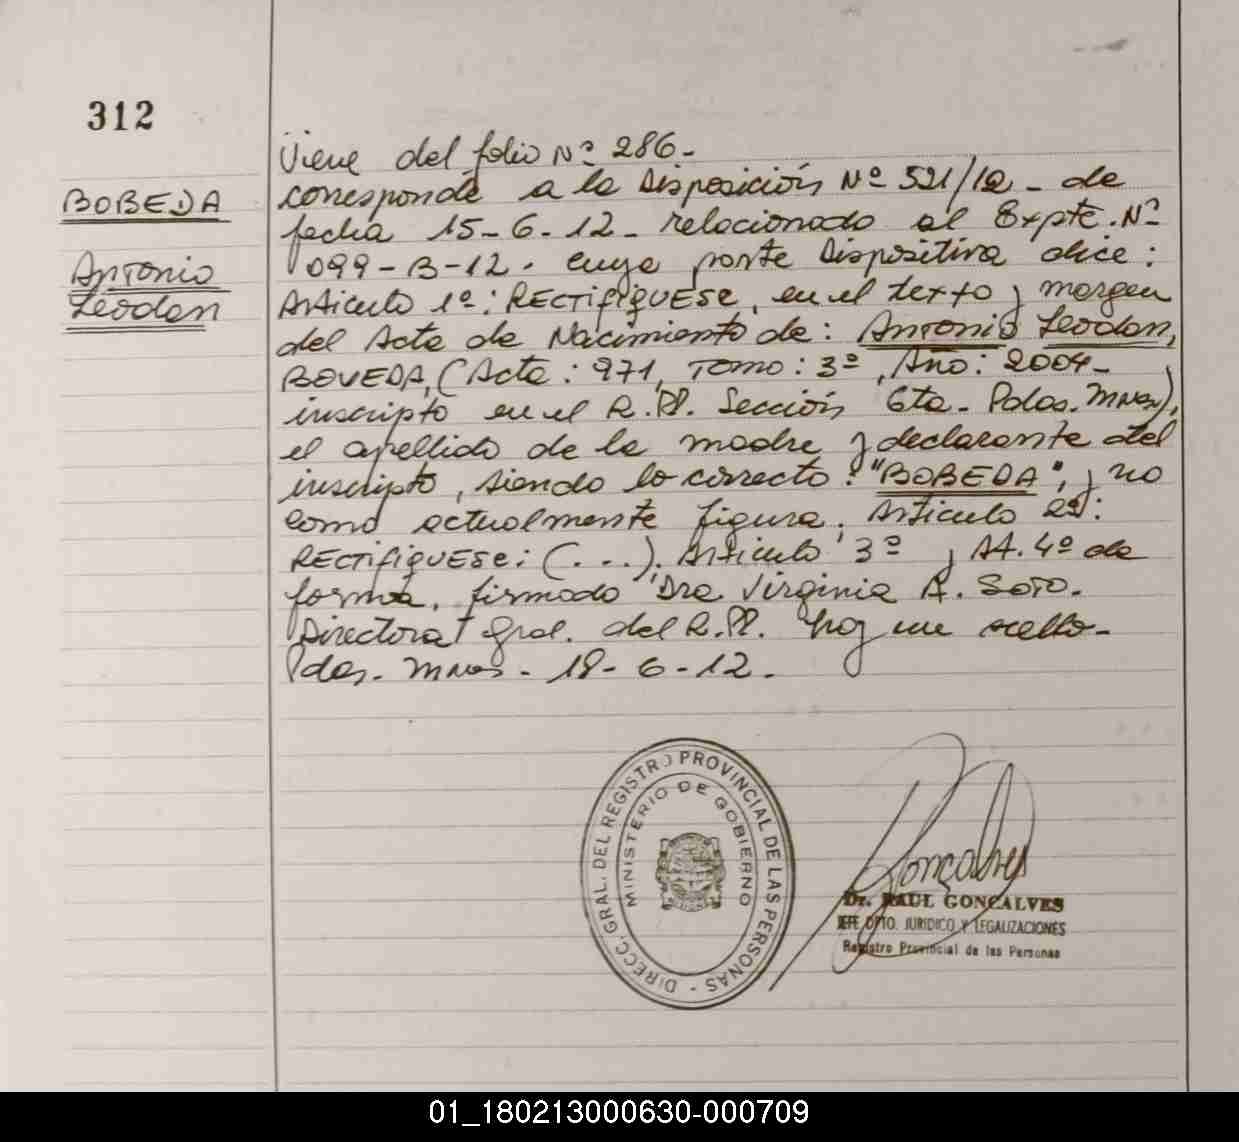 312
BOBEDA
Antonio
Leodan
Viene del folio Nº 286-
corresponde a la Disposición Nº 521/12- de
fecha 15-6-12- relacionado al Expte. Nº
099-B-12. cuya parte Dispositiva dice:
Articulo 1º: RECTIFIQUESE, en el texto y margen
del Acta de Nacimiento de: Antonio Leodan,
BOVEDA, (Acta: 971, Tomo: 3º, Año: 2004-
inscripto en el R.PP. Sección 6ta- Pdas. Mnes),
el apellido de la madre y declarante del
inscripto, siendo lo correcto: "BOBEDA", y no
como actualmente figura. Articulo 2º:
RECTIFIQUESE: (...). Articulo 3º y At. 4º de
forma. firmado Dra Virginia A. Soto.
Directora Gral. del R.PP. hoy un sello-
Pdas. Mnes- 18-6-12.
DIRECC. GRAL. DEL REGISTRO PROVINCIAL DE LAS PERSONAS -
MINISTERIO DE GOBIERNO
Goncalves
Dr. RAUL GONCALVES
JEFE DPTO. JURIDICO Y LEGALIZACIONES
Registro Provincial de las Personas
01_180213000630-000709